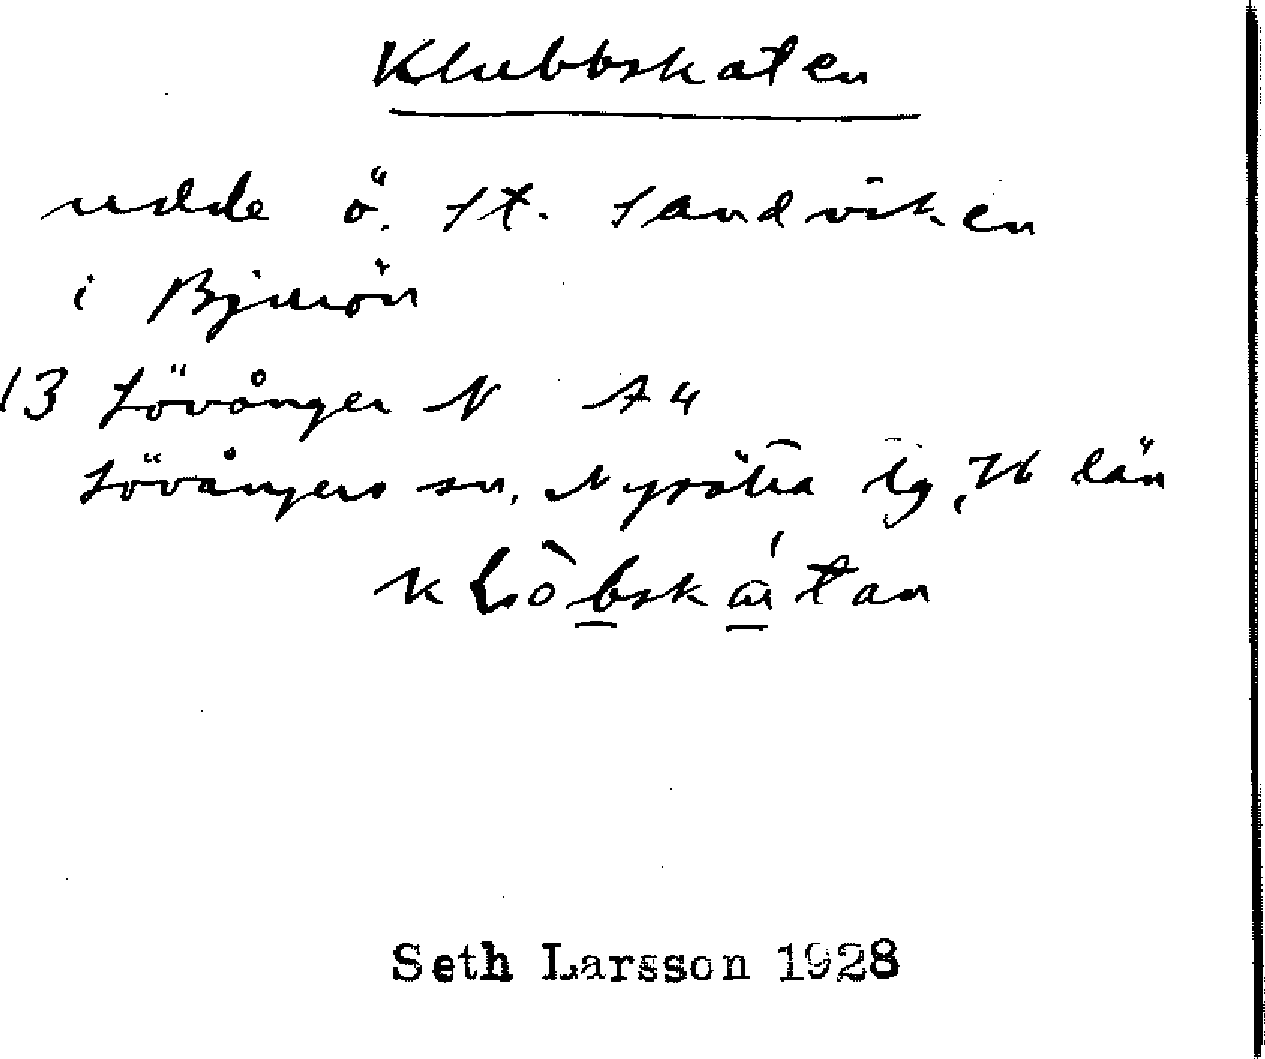 Klubbskaten
udde ö. St. Sandviken
i Bjurön
13 Lövånger N A 4
Lövångers sn, Nysätra tg, Vb län
Seth Larsson 1928